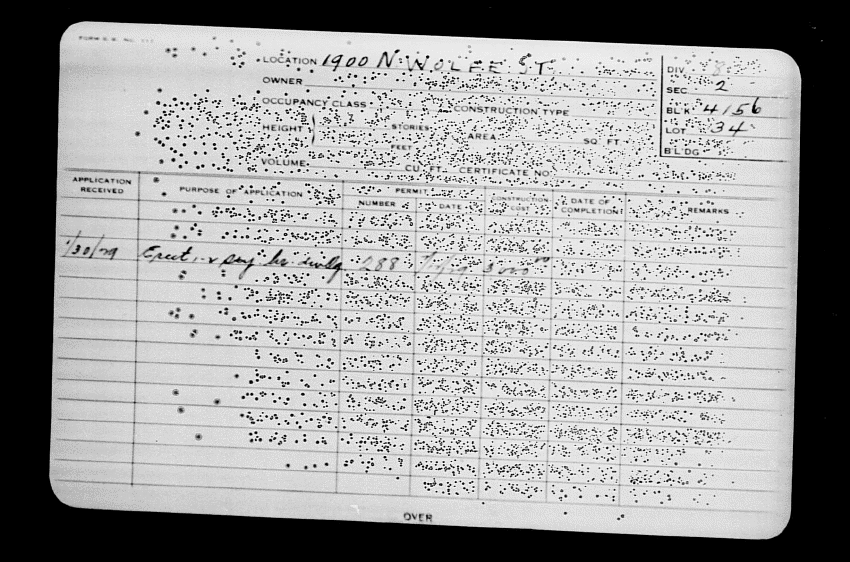 LOCATION 1900 N. WOLFE ST.
DIV 8
OWNER
SEC 2
OCCUPANCY CLASS CONSTRUCTION TYPE
BL'K 4156
HEIGHT STORIES AREA SQ. FT.
LOT 34
FEET
BLDG
VOLUME CU. FT. CERTIFICATE NO.
APPLICATION RECEIVED PURPOSE OF APPLICATION PERMIT CONSTRUCTION COST DATE OF COMPLETION REMARKS
NUMBER DATE
1/30/29 Erect 288
OVER